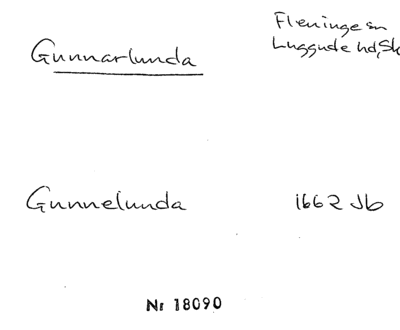 Gunnarlunda
Fleninge sn
Luggude hd, Sk
Gunnelunda 1662 Jb
Nr 18090